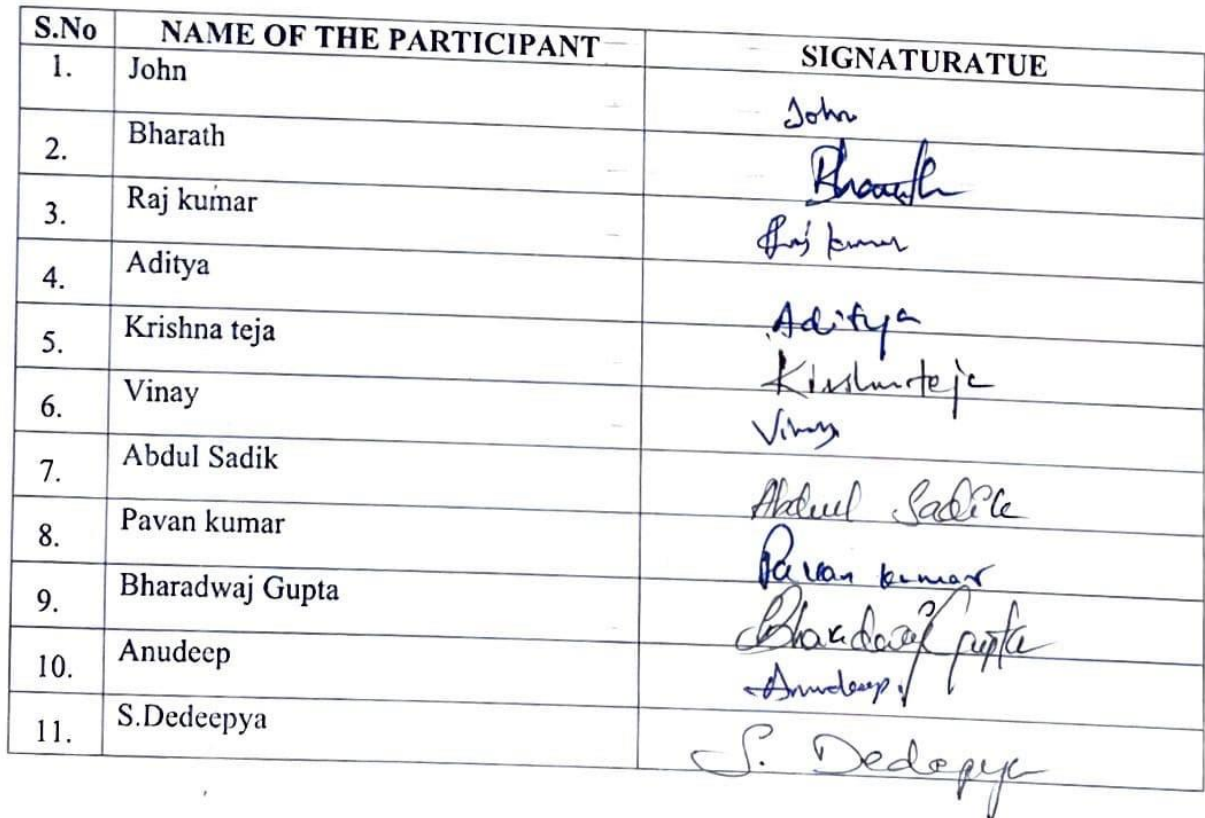 S.No NAME OF THE PARTICIPANT SIGNATURATUE
1. John John
2. Bharath Bharath
3. Raj kumar Raj kumar
4. Aditya Aditya
5. Krishna teja
6. Vinay Vinay
7. Abdul Sadik Abdul Sadik
8. Pavan kumar Pavan kumar
9. Bharadwaj Gupta Bharadwaj gupta
10. Anudeep Anudeep.
11. S.Dedeepya S. Dedepya